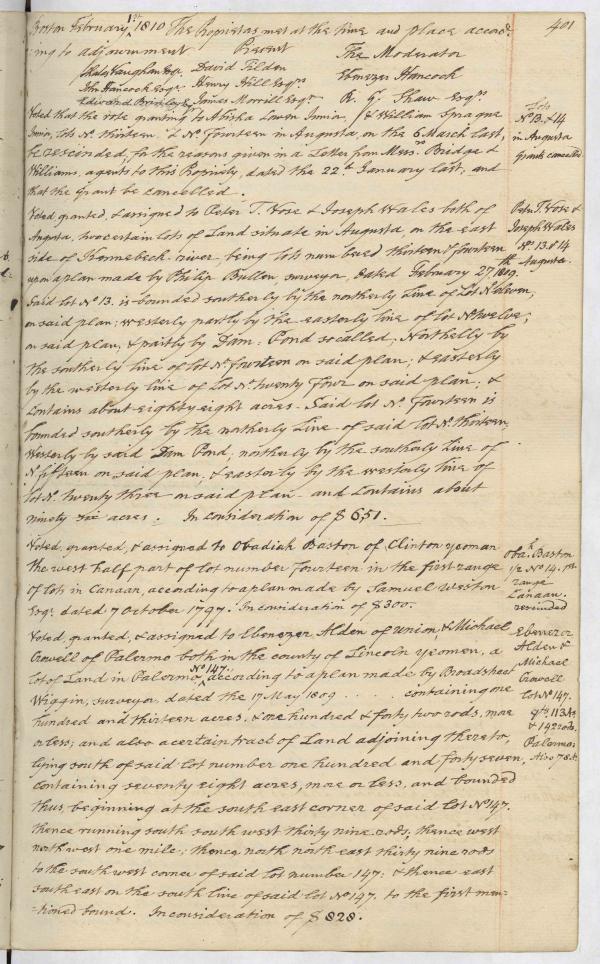 401
Boston February 1st 1810 The Propietas met at the time and place accord-
-ing to adjournment Present The Moderator
Charles Vaughan Esqr. David Tilden Ebenezer Hancock
Jhn Hancock Esqr. Henry Hill Esqr. R. G. Shaw Esqr.
Edward Bridley James Morrill Esqr.
Voted that the vote granting to Elisha Junior, & William Sprague
Junior, Lots No. thirteen & No. Fourteen in Augusta, on the 6 March last,
be rescinded, for the reasons given in a Letter from Messrs. Bridge &
Williams, agents to this Propriety, dated the 22d. January last, and
that the grant be cancelled.
Lots
No. 13 & 14
in Augusta
grants cancelled
Voted granted, & assigned to Peter T. Vose & Joseph Wales both of
Augusta, two certain lots of Land situate in Augusta, on the east
side of Kennebeck river, being lots numbered thirteen & fourteen
upon a plan made by Philip Bullen surveyor, dated February 27th 1809.
Said Lot No. 13. is bounded southerly by the northerly Line of Lot No. eleven,
on said plan; westerly partly by the easterly line of Lot No. twelve;
on said plan, & partly by Dam Pond so called, Northelly by
the southerly line of lot No. fourteen on said plan; & easterly
by the westerly line of Lot No. twenty four on said plan; &
contains about eighty eight acres. Said lot No. Fourteen is
bounded southerly by the northerly Line of said lot No. thirteen,
Westerly by said Dam Pond, northerly by the southerly Line of
No. fifteen on said plan, & easterly by the westerly line of
lot No. twenty three on said plan and contains about
ninety six acres. In consideration of $651.
Peter T. Vose &
Joseph Wales
No. 13 & 14
Augusta
Voted, granted, & assigned to Obadiah Baston of Clinton yeoman
the west half part of lot number fourteen in the first range
of lots in Canaan, according to a plan made by Samuel Weston
Esqr. dated 7 October 1797. In consideration of $300.
Obah. Baston
1/2 No. 14. 1st
range
Canaan.
rescinded
Voted, granted, & assigned to Ebenezer Alden of Union, & Michael
Crowell of Palermo both in the county of Lincoln yeomen, a
lot of Land in Palermo No. 147. according to a plan made by Broadstreet
Wiggin, surveyor, dated the 17 May 1809 . . . . . containing one
hundred and thirteen acres, & one hundred & forty two rods, more
or less; and also a certain tract of Land adjoining thereto,
lying south of said lot number one hundred and forty seven,
containing seventy eight acres, more or less, and bounded
thus, beginning at the south east corner of said lot No. 147.
thence running south south west thirty nine rods; thence west
north west one mile; thence north north east thirty nine rods
to the south west corner of said lot number 147: & thence east
south east on the south line of said lot No. 147. to the first men-
-tioned bound. In consideration of $828.
Ebenezer
Alden &
Michael
Crowell
lot No. 147.
qty. 113 As
& 142 rods.
Palermo
Also 78 A.